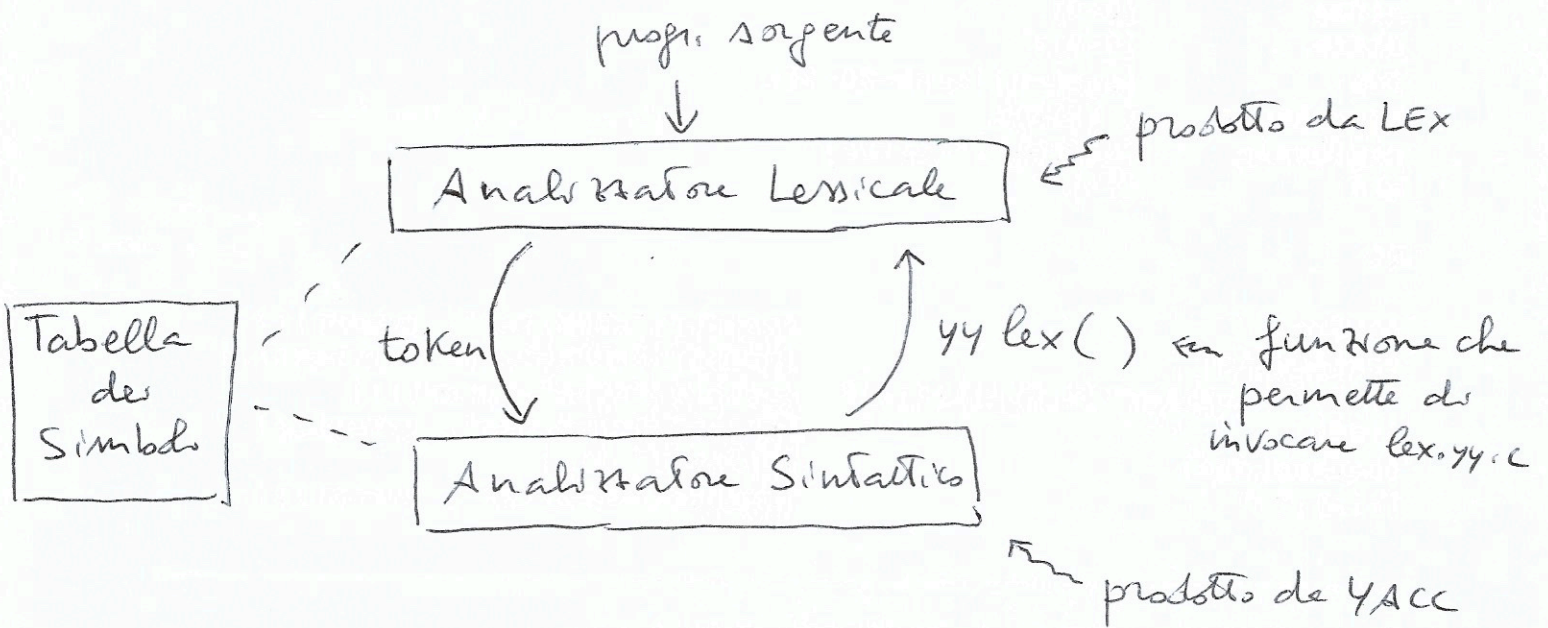 progr. sorgente
prodotto da LEX
Analizzatore Lessicale
Tabella
dei
Simboli
token
yy lex ( )
funzione che
permette di
invocare lex.yy.c
Analizzatore Sintattico
prodotto da YACC